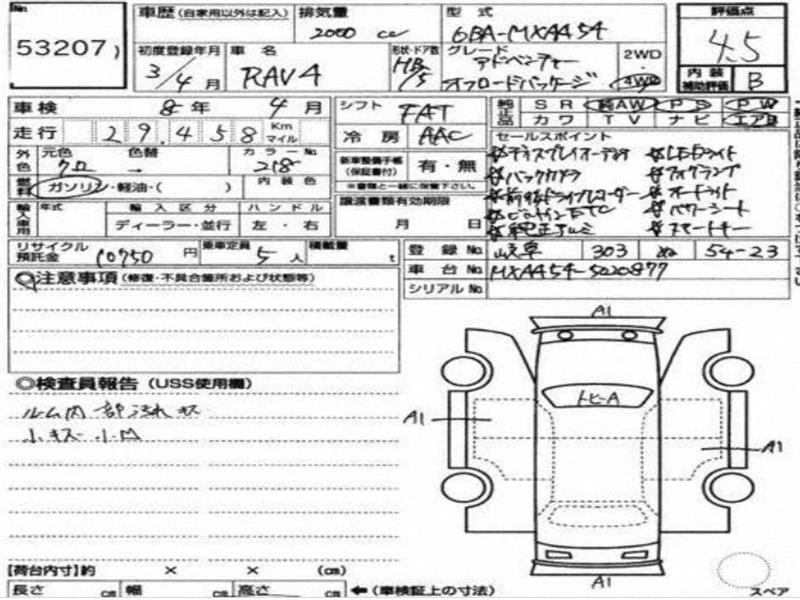 No. 53207
車歴 (自家用以外は記入) 排気量 2000 cc 型式 6BA-MXAA54
評価点 4.5
内装補助評価 B
初度登録年月 3/4月 車名 RAV4 形状・ドア数 HB/5 グレード アドベンチャー オフロードパッケージ 2WD 4WD
車検 8年 4月 シフト FAT
純正品 SR 純AW PS PW
カワ TV ナビ エアB
走行 29,458 Km マイル 冷房 AAC
セールスポイント
外色 元色 クロ 色替 → カラーNo. 218
新車整備手帳(保証書付) 有・無
※書類と一緒に保管下さい。
ディスプレイオーディオ LEDライト
バックカメラ フォグランプ
前後ドライブレコーダー オートライト
ビルトインETC パワーシート
純正アルミ スマートキー
燃料 ガソリン・軽油・( ) 内装色
譲渡書類有効期限
月 日
輸入車用 年式 輸入区分 ハンドル
ディーラー・並行 左・右
リサイクル預託金 10750 円 乗車定員 5 人 積載量 t
登録No. 岐阜 303 ぬ 54-23
車台No. MXAA54-5020877
シリアルNo.
注意事項 (修復・不具合箇所および状態等)
◎検査員報告 (USS使用欄)
ルーム内一部汚れキズ
小キズ小凹
A1
トヒ-A
A1
A1
A1
【荷台内寸】約 × × (cm)
長さ cm 幅 cm 高さ cm ←(車検証上の寸法)
スペア